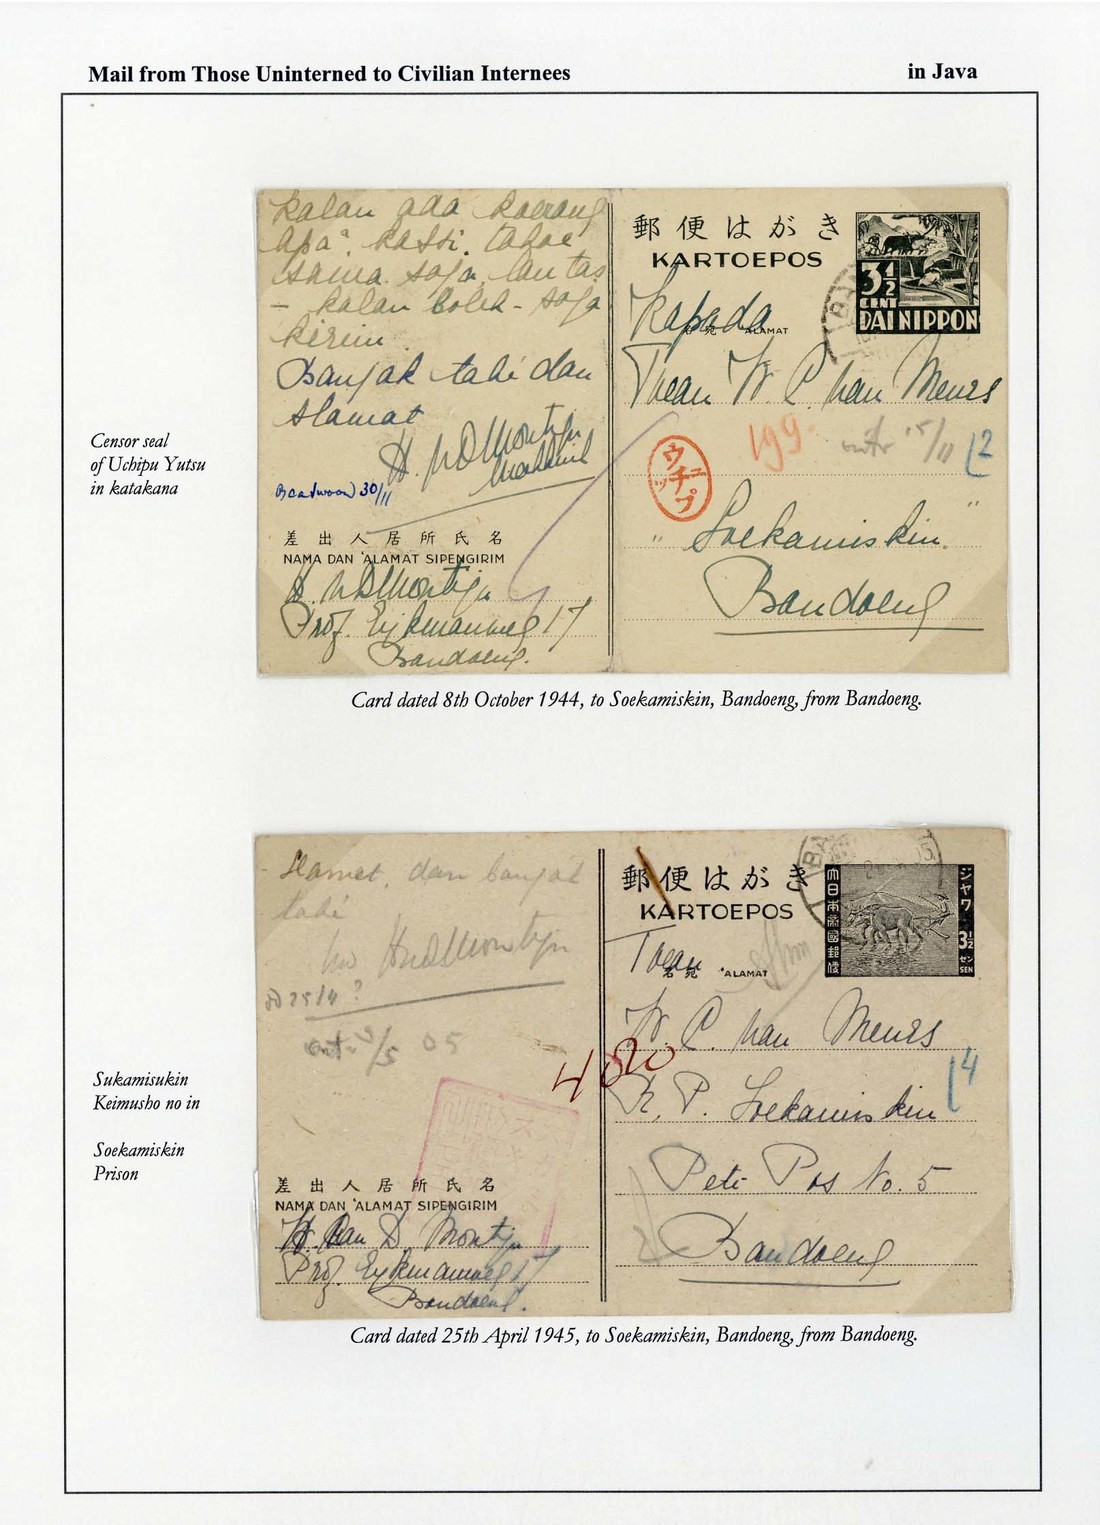 Mail from Those Uninterned to Civilian Internees
in Java
kalau ada koerang
apa² kassi tahoe
sama saja lantas
– kalau boleh – saja
kirim.
Banjak tabé dan
slamat
30/11
差出人居所氏名
NAMA DAN ALAMAT SIPENGIRIM
Prof. Eijkmanweg 17
Bandoeng.
郵便はがき
KARTOEPOS
3½
CENT
DAI NIPPON
Kapada
名宛 ALAMAT
Toean W. C. van Meurs
199.
15/11
12
ウチプ
"Soekamiskin."
Bandoeng
Censor seal
of Uchipu Yutsu
in katakana
Card dated 8th October 1944, to Soekamiskin, Bandoeng, from Bandoeng.
Slamet, dan banjak
tabé
25/4?
2/5 05
差出人居所氏名
NAMA DAN ALAMAT SIPENGIRIM
Prof. Eijkmanweg 17
Bandoeng.
郵便はがき
KARTOEPOS
大日本帝國郵便
ジャワ
3½
セン
SEN
Toean
名宛 ALAMAT
W. C. van Meurs
14
R. P. Soekamiskin
Peti Pos No. 5
Bandoeng
Sukamisukin
Keimusho no in
Soekamiskin
Prison
Card dated 25th April 1945, to Soekamiskin, Bandoeng, from Bandoeng.